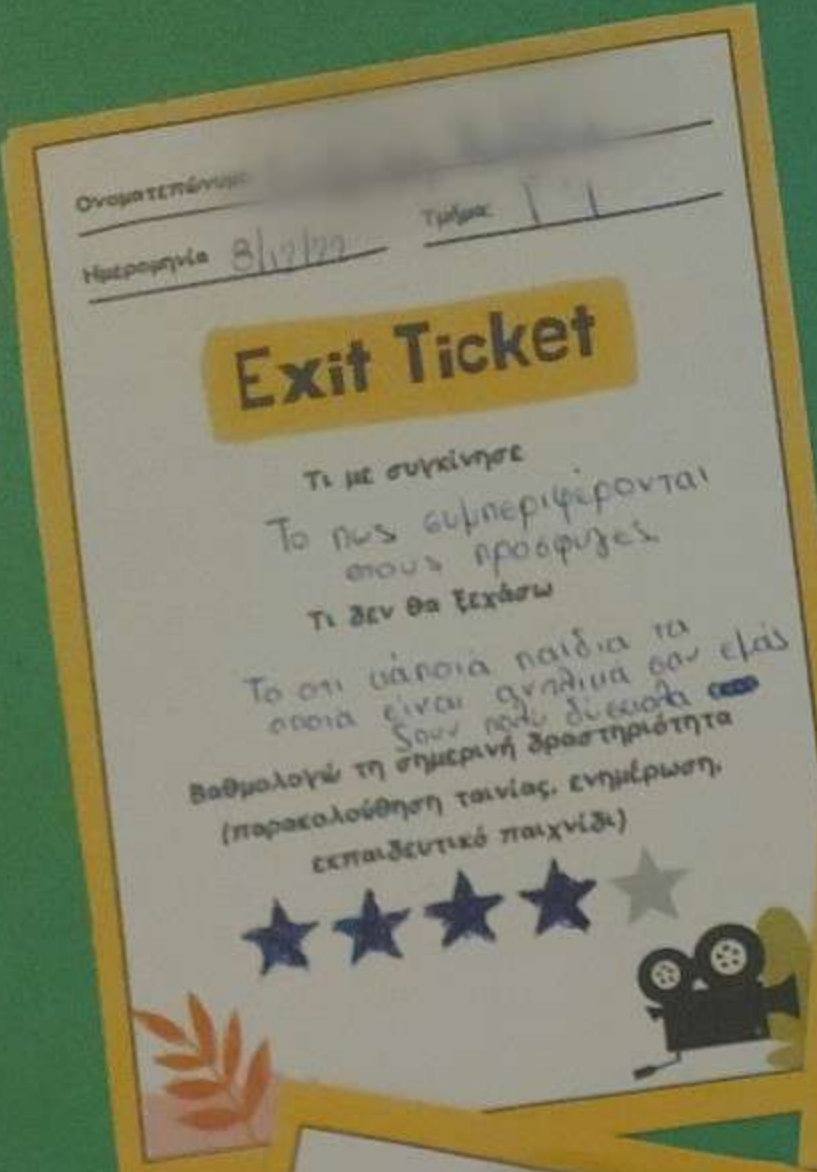 Ονοματεπώνυμο
Ημερομηνία 8/12/22 Τμήμα:
Exit Ticket
Τι με συγκίνησε
Το πως συμπεριφέρονται
στους πρόσφυγες
Τι δεν θα ξεχάσω
Το οτι κάποια παιδια τα
οποία είναι ανήλικα σαν εμάς
ζουν πολυ δύσκολα
Βαθμολογώ τη σημερινή δραστηριότητα
(παρακολούθηση ταινίας, ενημέρωση,
εκπαιδευτικό παιχνίδι)